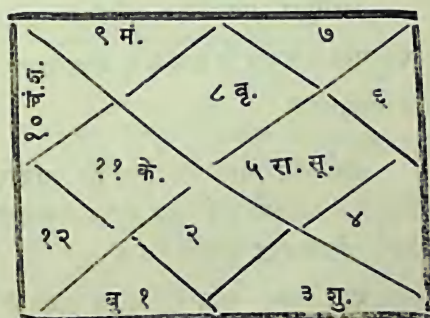 ९ मं.
७
१० चं. श.
८ वृ.
६
११ के.
५ रा. सू.
१२
२
४
बु १
३ शु.